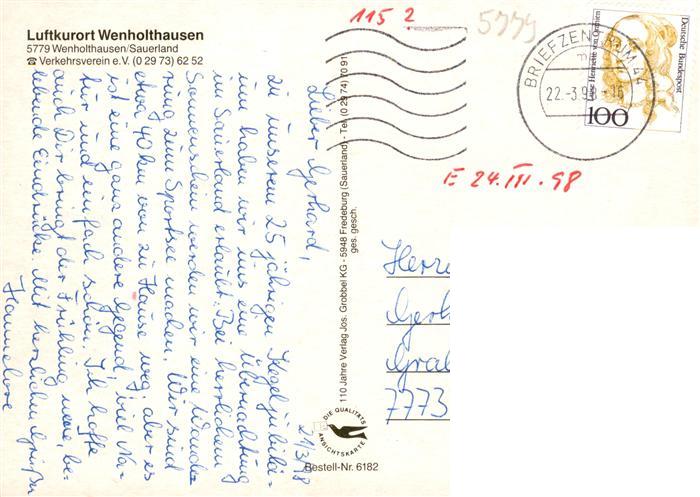 Luftkurort Wenholthausen
5779 Wenholthausen/Sauerland
☎ Verkehrsverein e.V. (0 29 73) 62 52
115 2
5779
BRIEFZENTRUM 44
22.-3.98-16
Luise Henriette von Oranien
Deutsche Bundespost
100
E 24. III. 98
21/3/98
Lieber Gerhard,
zu unserem 25 jährigen Kegeljubilä-
um haben wir uns eine Übernachtung
im Sauerland erlaubt. Bei herrlichem
Sonnenschein werden wir eine Wande-
rung zum Sportsee machen. Wir sind
etwa 40 km von zu Hause weg, aber es
ist eine ganz andere Gegend, viel Na-
tur und einfach schön. Ich hoffe
auch Dir bringt der Frühling neue, be-
lebende Eindrücke. Mit herzlichen Grüßen
Hannelore
110 Jahre Verlag Jos. Grobbel KG - 5948 Fredeburg (Sauerland) - Tel. (0 29 74) 70 91
ges. gesch.
DIE QUALITÄTS
ANSICHTSKARTE
Bestell-Nr. 6182
Herrn
Gerh
Gral
7773